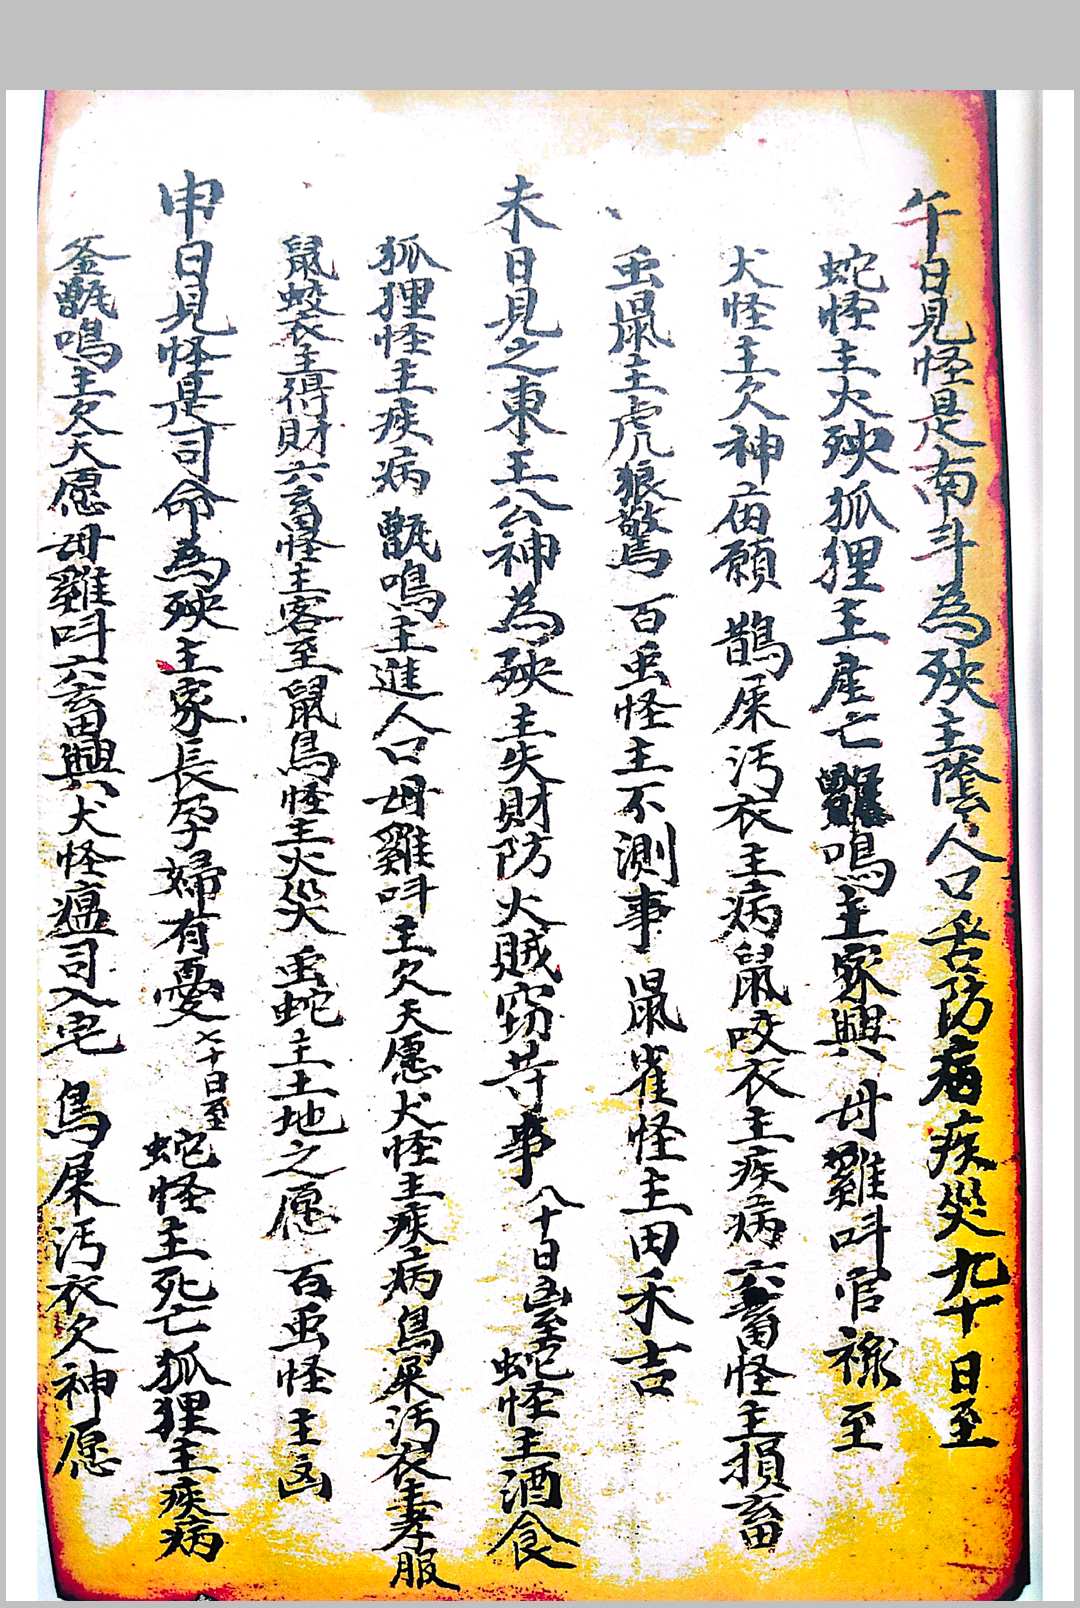 午日見怪是南斗為殃主陰人口舌防病疾災九十日至
蛇怪主火殃狐狸主産亡甑鳴主家興母雞叫官祿至
犬怪主欠神庙願鵲屎汚衣主病鼠咬衣主疾病六畜怪主損畜
䖝鼠主虎狼驚百䖝怪主不測事鼠雀怪主田禾吉
未日見之東王公神為殃主失財防火賊窃苛事八十日凶至蛇怪主酒食
狐狸怪主疾病甑鳴主進人口母雞叫主欠天愿犬怪主疾病鳥屎汚衣主孝服
鼠咬衣主得財六畜怪主客至鼠鳥怪主火災䖝蛇主土地之愿百䖝怪主凶
申日見怪是司命為殃主家長孕婦有憂七十日至蛇怪主死亡狐狸主疾病
釜甑鳴主欠天愿母雞叫六畜興犬怪瘟司入宅鳥屎汚衣欠神愿